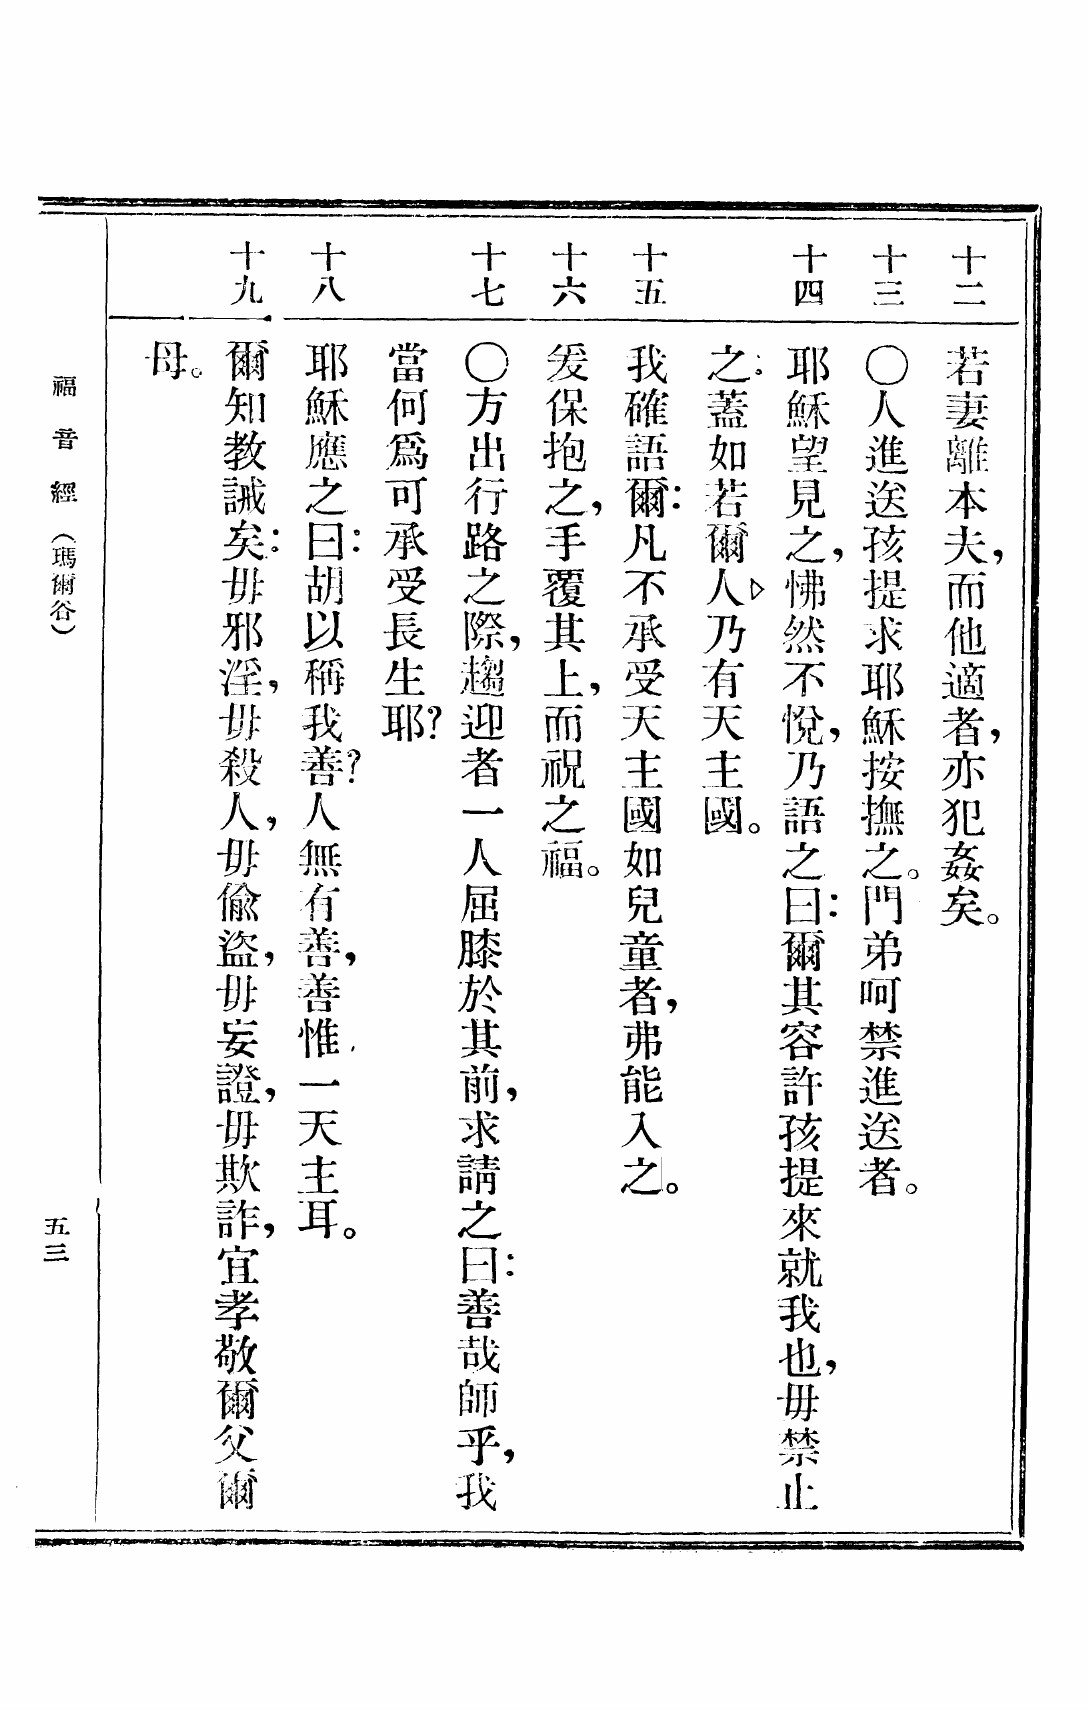 十二
若妻離本夫，而他適者，亦犯姦矣。
十三
〇人進送孩提求耶穌按撫之。門弟呵禁進送者。
十四
耶穌望見之，怫然不悅，乃語之曰：爾其容許孩提來就我也，毋禁止
之：蓋如若爾人▷乃有天主國。
十五
我確語爾：凡不承受天主國如兒童者，弗能入之。
十六
爰保抱之，手覆其上，而祝之福。
十七
〇方出行路之際，趨迎者一人屈膝於其前，求請之曰：善哉師乎，我
當何爲可承受長生耶？
十八
耶穌應之曰：胡以稱我善？人無有善，善惟一天主耳。
十九
爾知教誡矣：毋邪淫，毋殺人，毋偸盜，毋妄證，毋欺詐，宜孝敬爾父爾
母。
福音經（瑪爾谷）
五三